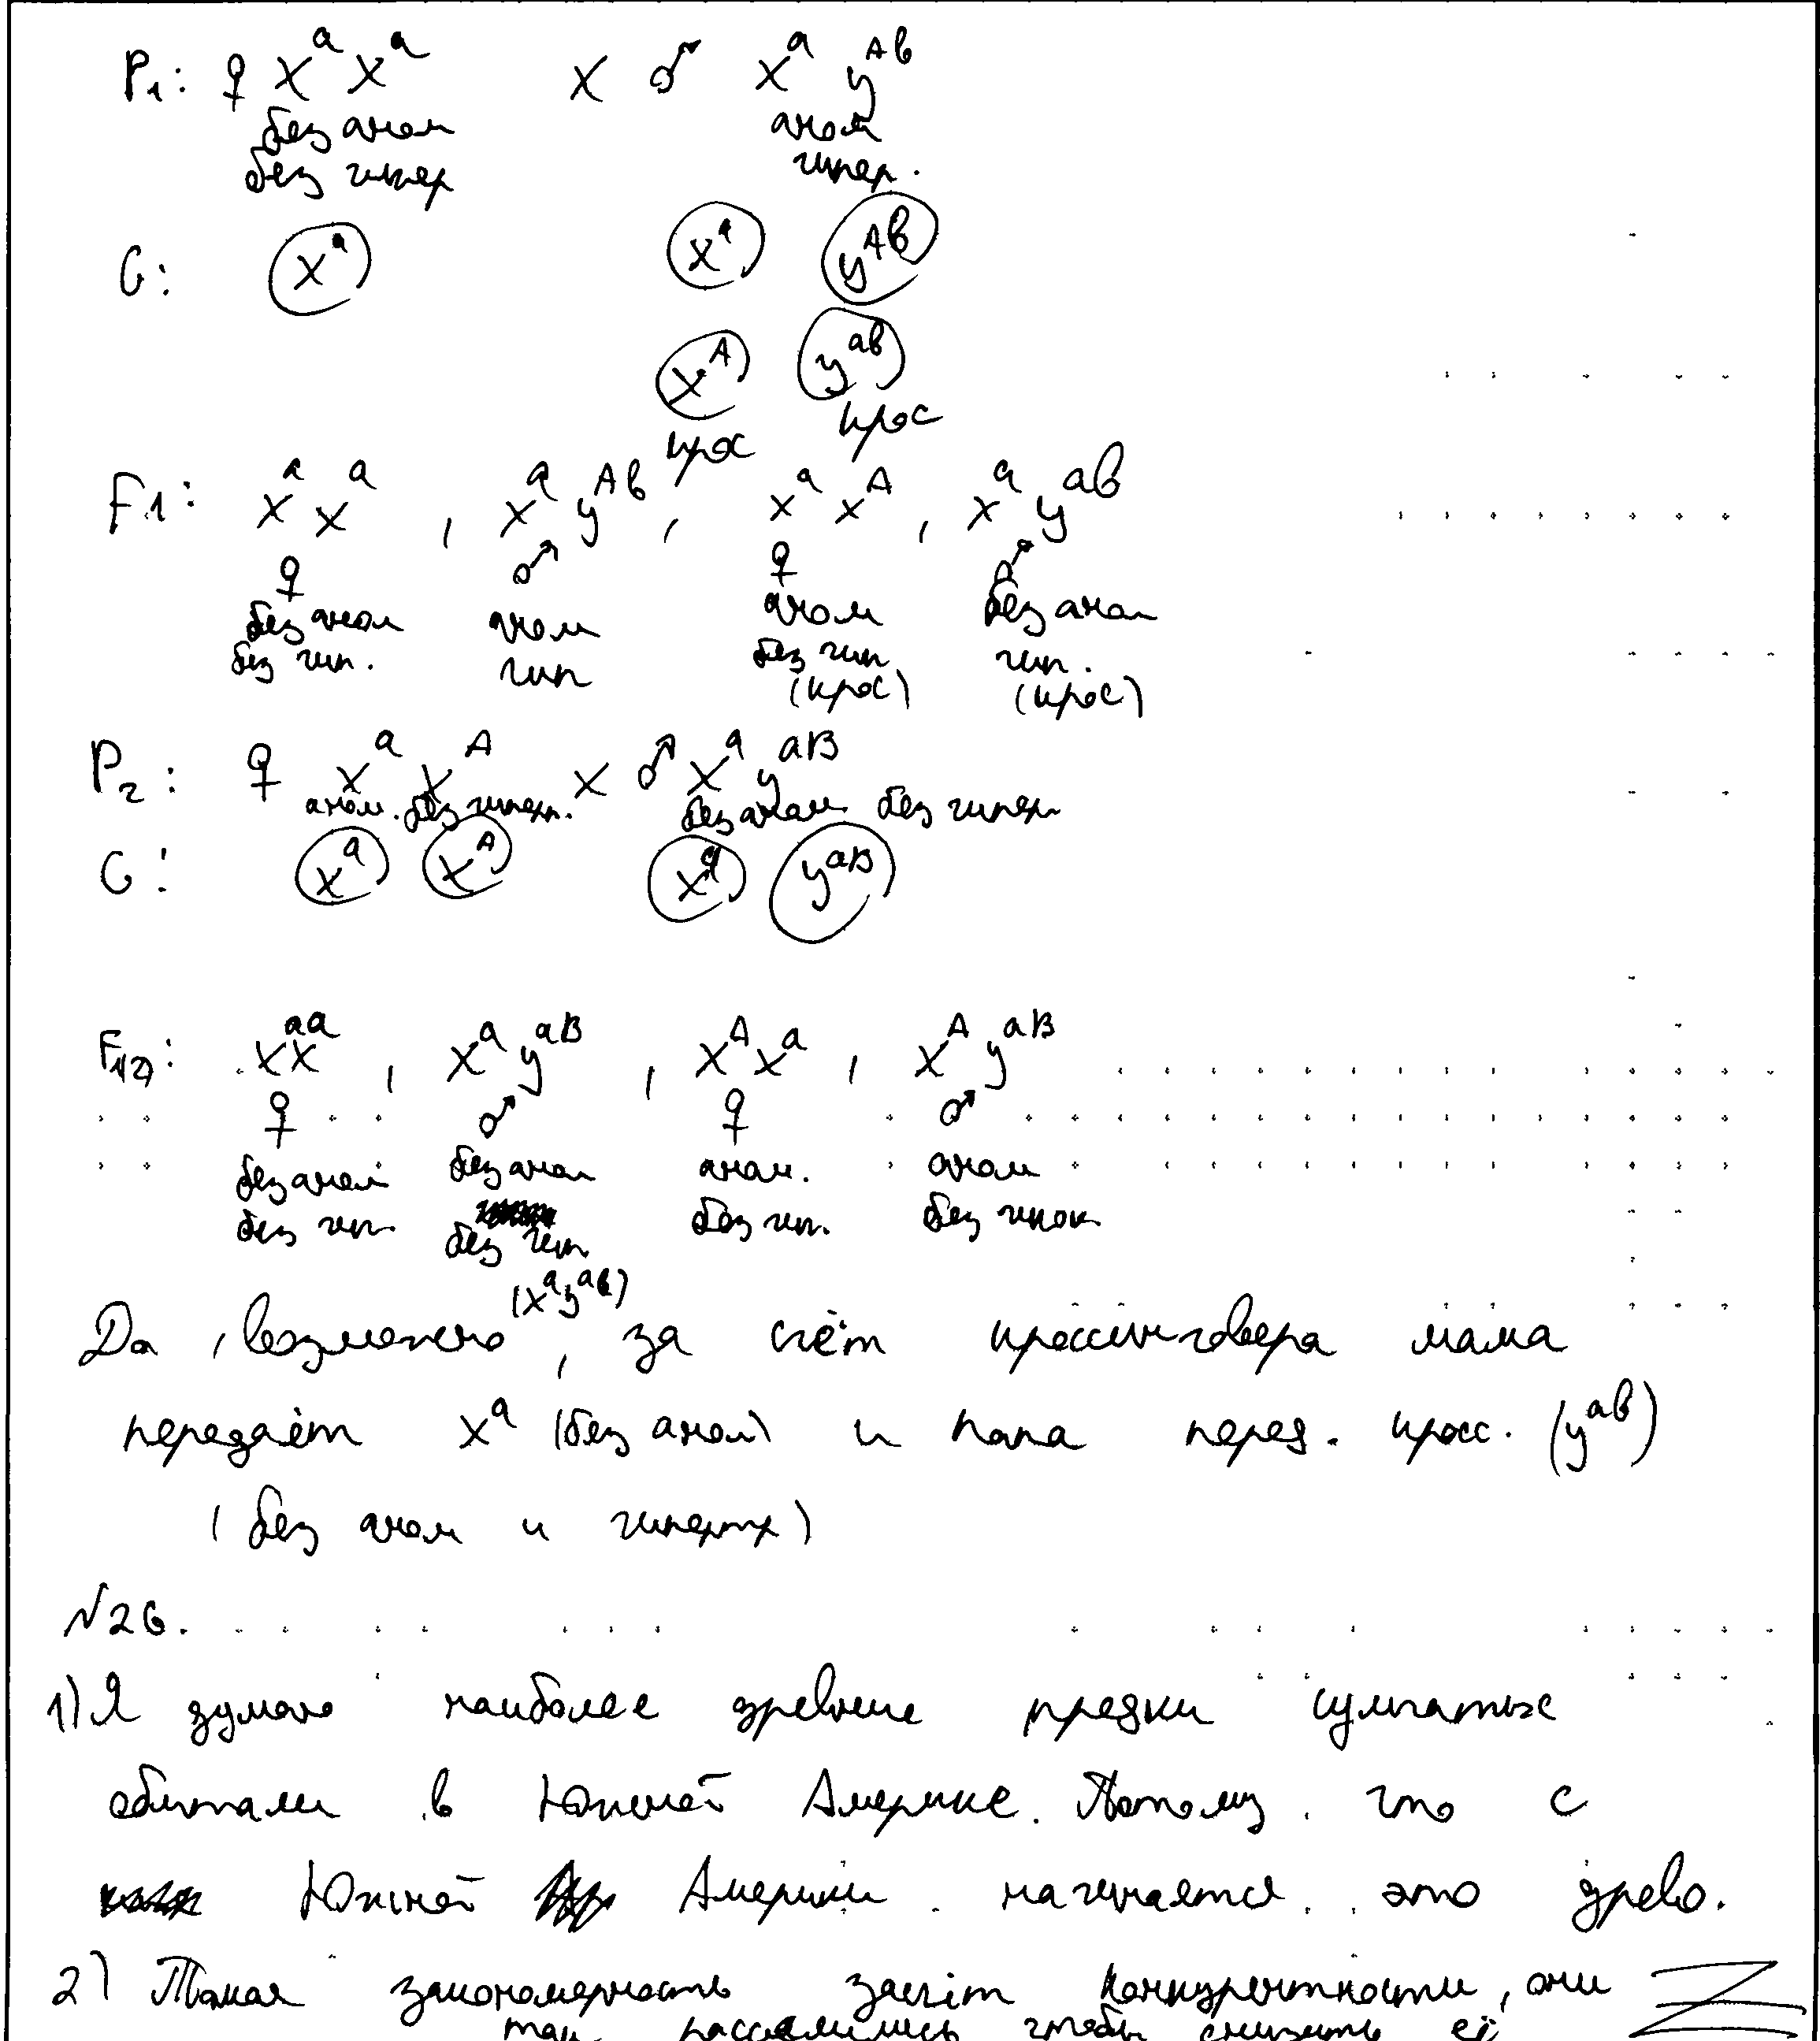 P₁: ♀ XᵃXᵃ х ♂ Xᵃ yᴬᵇ
без аном аном
без гипер гипер.
G: Xᵃ Xᵃ yᴬᵇ
Xᴬ yᵃᵇ
крос крос
F1: XᵃXᵃ, Xᵃyᴬᵇ, XᵃXᴬ, Xᵃyᵃᵇ
♀ ♂ ♀ ♂
без аном аном аном без аном
без гип. гип без гип гип.
(крос) (крос)
P₂: ♀ XᵃXᴬ х ♂ Xᵃyᵃᴮ
аном. без гиперт. без аном без гипер
G: Xᵃ Xᴬ Xᵃ yᵃᴮ
F₁₍₂₎: XXᵃᵃ, Xᵃyᵃᴮ, XᴬXᵃ, Xᴬyᵃᴮ
♀ ♂ ♀ ♂
без аном без аном аном. аном
без гип. без гип. без гип.
(Xᵃyᵃᵇ)
Да, возможно, за счёт кроссинговера мама
передаёт Xᵃ (без аном) и папа перед. кросс. (yᵃᵇ)
(без аном и гипертр)
N26.
1) Я думаю наиболее древние предки сумчатых
обитали в Южной Америке. Потому что с
Южной Америки начинается это древо.
2) Такая закономерность засчёт конкурентности, они
так расселились чтобы снизить её